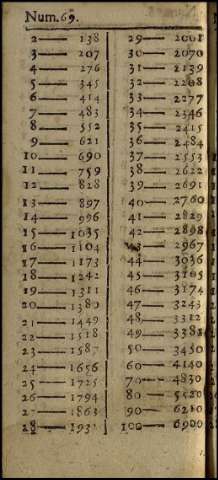 Num.69.
2— 138
3— 207
4— 276
5— 345
6— 414
7— 483
8— 552
9— 621
10— 690
11— 759
12— 828
13— 897
14— 996
15— 1035
16— 1104
17— 1173
18— 1242
19— 1311
20— 1380
21— 1449
22— 1518
23— 1587
24— 1656
25— 1725
26— 1794
27— 1863
28— 193
29— 2001
30— 2070
31— 2139
32— 2208
33— 2277
34— 2346
35— 2415
36— 2484
37— 2553
38— 2622
39— 2691
40— 2760
41— 2829
42— 2898
43— 2967
44— 3036
45— 3105
46— 3174
47— 3243
48— 3312
49— 3381
50— 3450
60— 4140
70— 4830
80— 5520
90— 6210
100— 6900